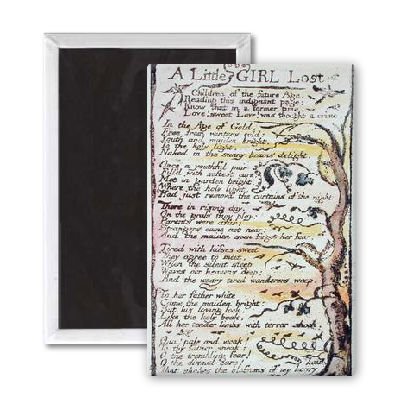 A Little GIRL Lost
Children of the future Age,
Reading this indignant page:
Know that in a former time,
Love! sweet Love! was thought a crime
In the Age of Gold,
Free from winters cold:
Youth and maiden bright,
To the holy light,
Naked in the sunny beams delight
Once a youthful pair
Fill'd with softest care:
Met in garden bright,
Where the holy light,
Had just removd the curtains of the night
There in rising day,
On the grass they play:
Parents were afar:
Strangers came not near:
And the maiden soon forgot her fear.
Tired with kisses sweet
They agree to meet,
When the silent sleep
Waves o'er heavens deep:
And the weary tired wanderers weep.
To her father white
Came the maiden bright:
But his loving look,
Like the holy book,
All her tender limbs with terror shook.
Ona! pale and weak!
To thy father speak:
O the trembling fear!
O the dismal care!
That shakes the blossoms of my hoary